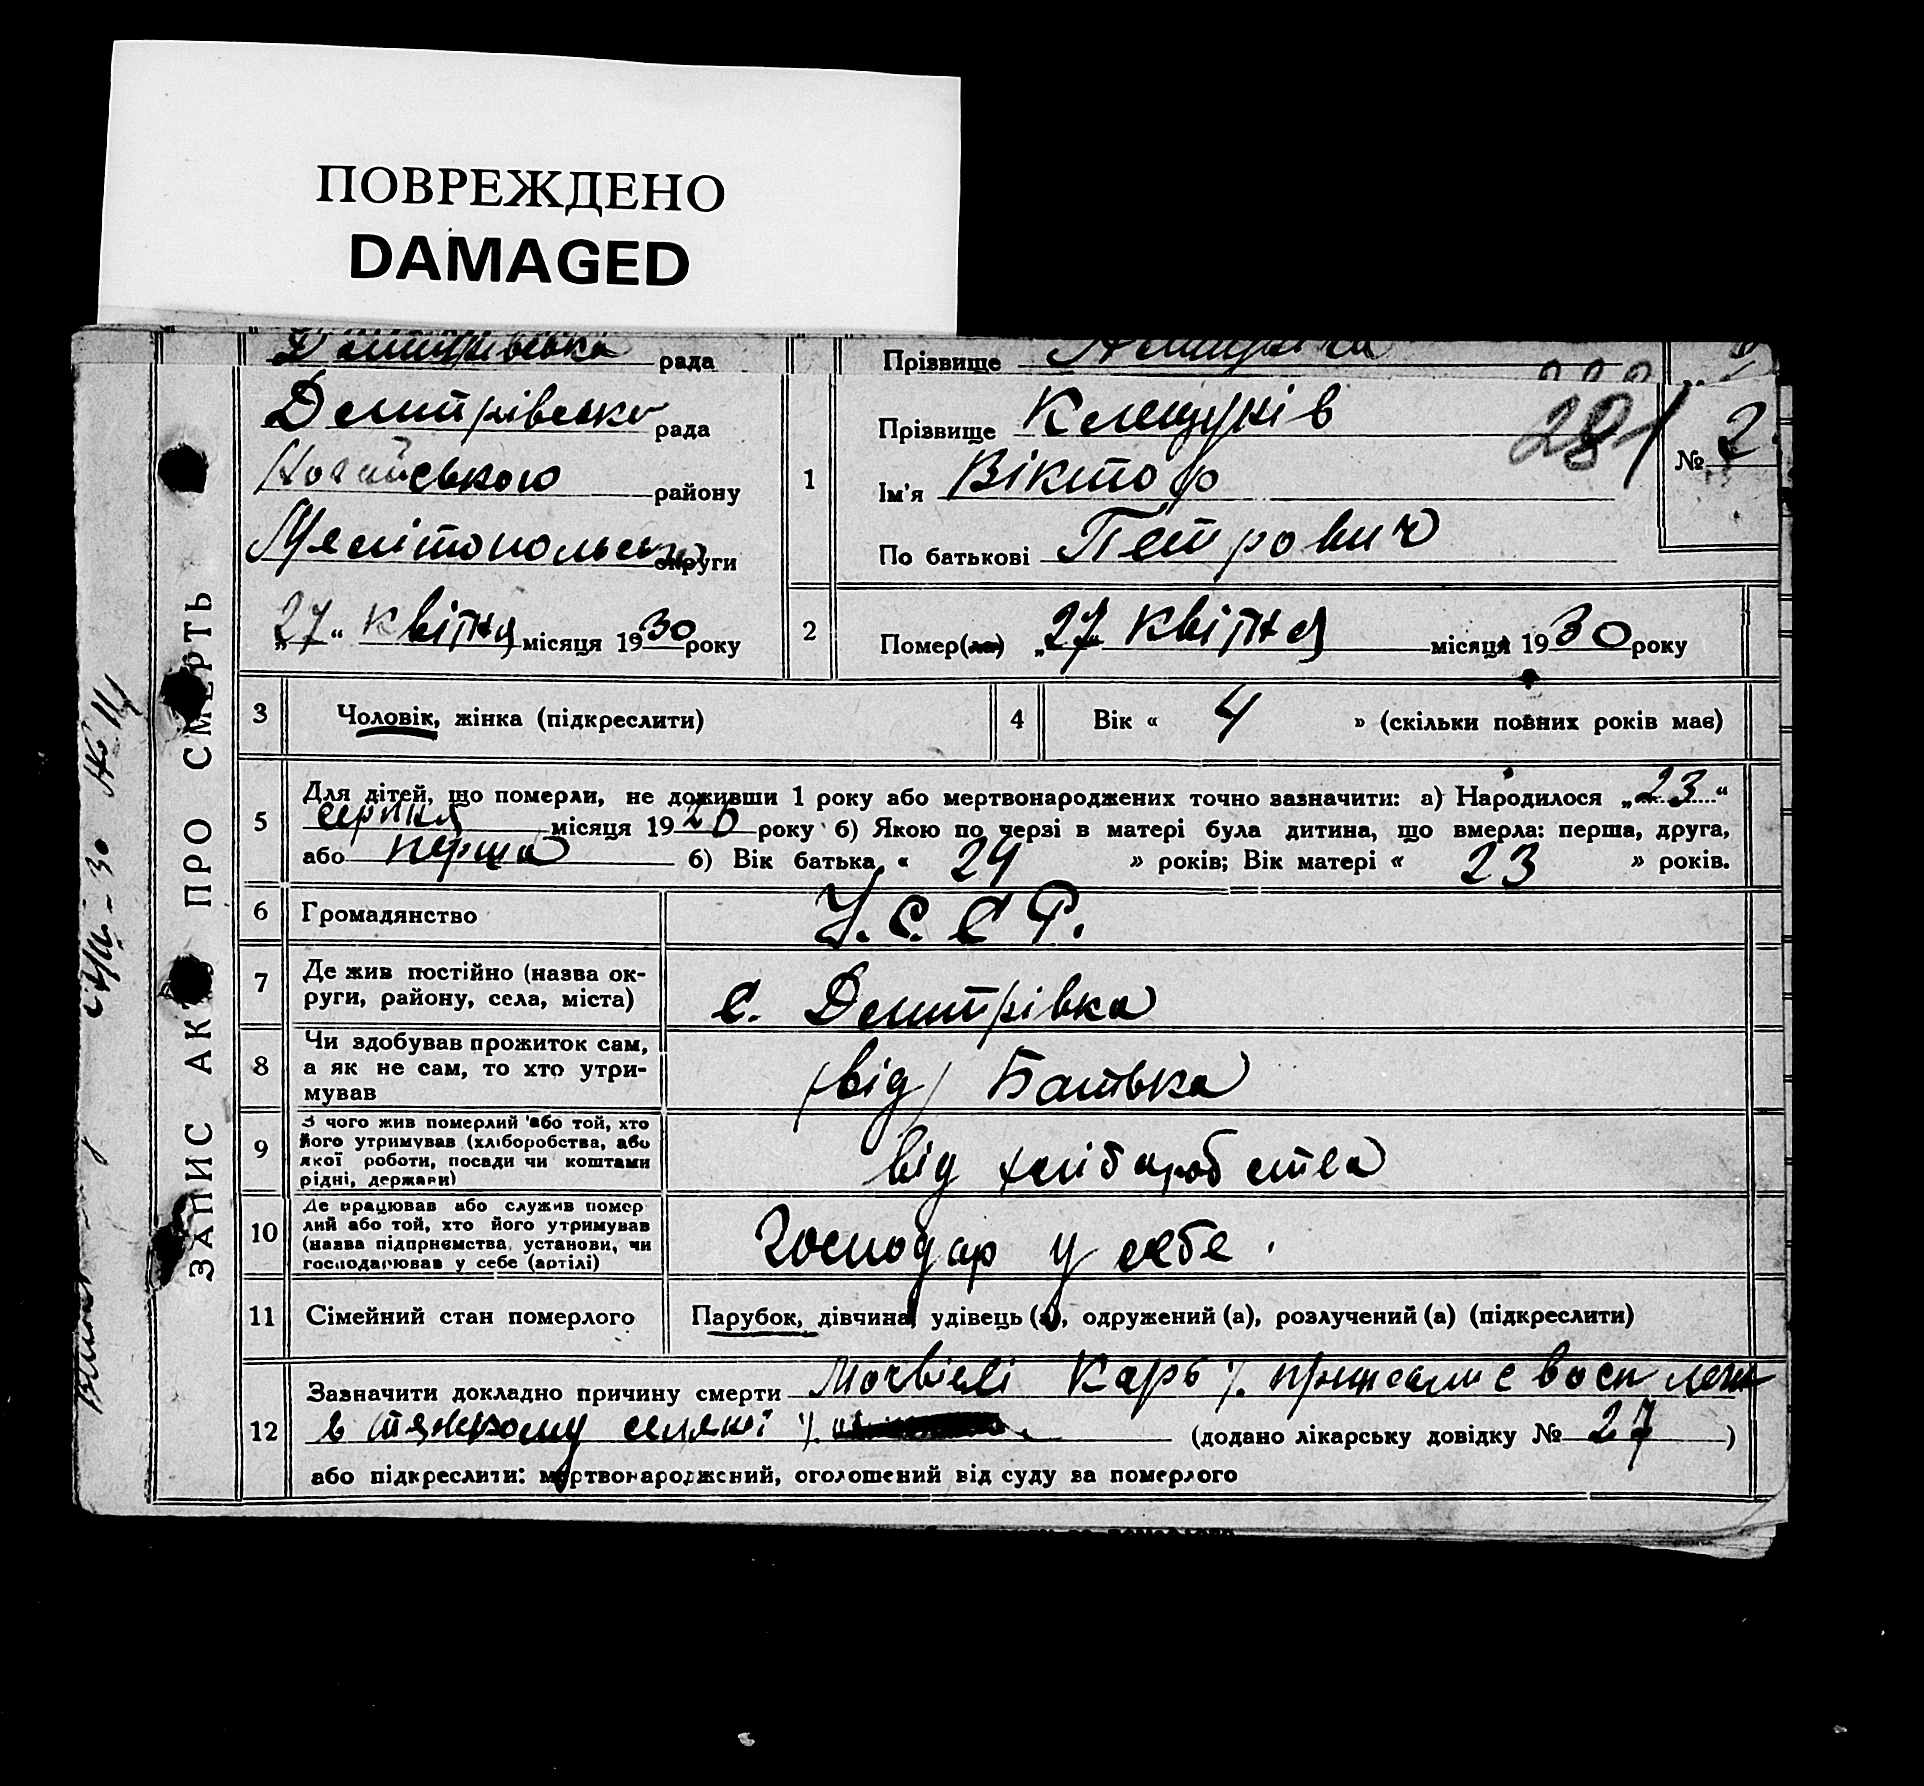 ПОВРЕЖДЕНО
DAMAGED
рада
Прізвище
Демитрівсько рада
Ногайського району
Мелітопольсько округи
„27“ квітня місяця 1930 року
1
Прізвище Клещунів
Ім'я Віктор
По батькові Петрович
281
№ 2
2
Помер(ла) „27 квітня місяця 1930 року
3
Чоловік, жінка (підкреслити)
4
Вік « 4 » (скільки повних років має)
5
Для дітей, що померли, не доживши 1 року або мертвонароджених точно зазначити: а) Народилося „23“
серпня місяця 1926 року б) Якою по черзі в матері була дитина, що вмерла: перша, друга,
або перша б) Вік батька « 24 » років; Вік матері « 23 » років.
6
Громадянство
У.С.С.Р.
7
Де жив постійно (назва ок-
руги, району, села, міста)
с. Демитрівка
8
Чи здобував прожиток сам,
а як не сам, то хто утри-
мував
від Батька
9
З чого жив померлий або той, хто
його утримував (хліборобства, або
якої роботи, посади чи коштами
рідні, держави)
від хліборобства
10
Де працював або служив помер
лий або той, хто його утримував
(назва підприємства, установи, чи
господарював у себе (артілі)
Господар у себе.
11
Сімейний стан померлого
Парубок, дівчина, удівець (а), одружений (а), розлучений (а) (підкреслити)
12
Зазначити докладно причину смерти
в тяжкому (додано лікарську довідку № 27)
або підкреслити: мертвонароджений, оголошений від суду за померлого
ЗАПИС АКТУ ПРО СМЕРТЬ